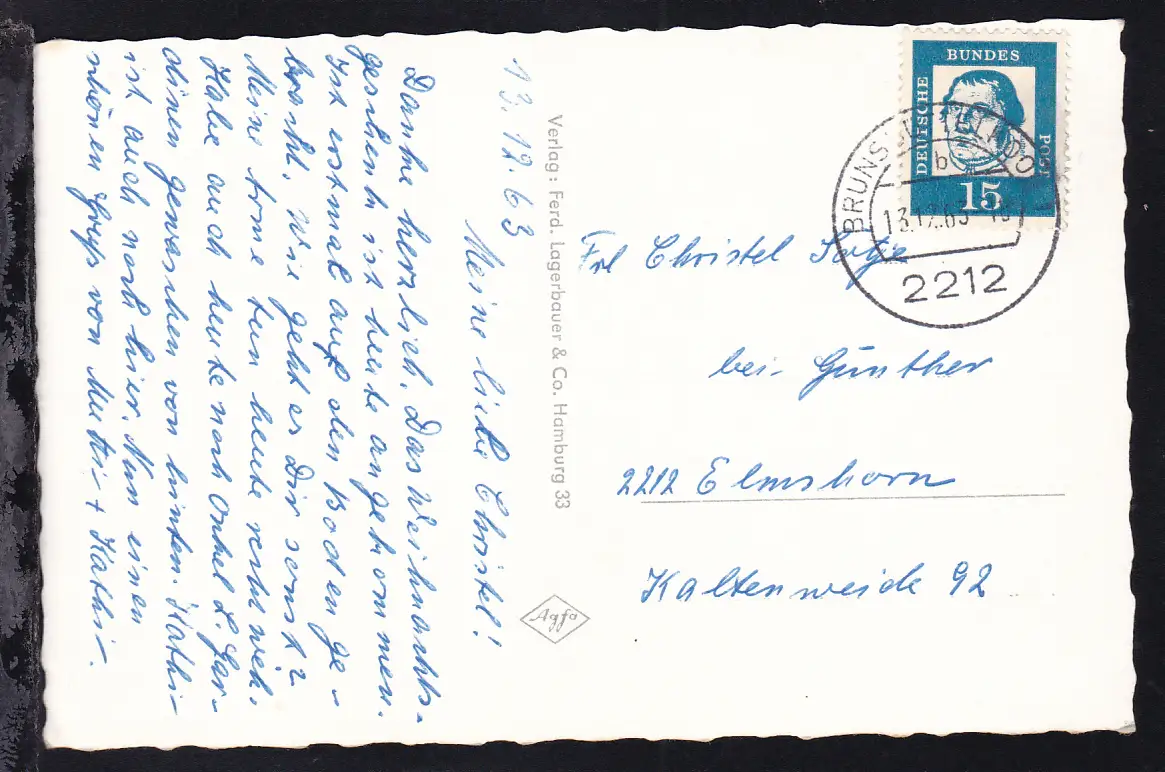 13.12.63
Meine liebe Christel!
Danke herzlich. Das Weihnachts-
geschenk ist heute angekommen.
Ist erstmal auf den Boden ge-
bracht. Wie geht es Dir sonst?
Meine Arme tun heute recht weh.
Habe auch heute noch Onkel
Gar-
dinen gewaschen von hinten. Kathi
ist auch noch hier. Nun einen
schönen Gruß von Mutti + Kathi.
Verlag: Ferd. Lagerbauer & Co. Hamburg 33
Agfa
DEUTSCHE
BUNDES
POST
15
BRUNS
b
13.12.63
2212
Frl Christel
bei Günther
2212 Elmshorn
Kaltenweide 92